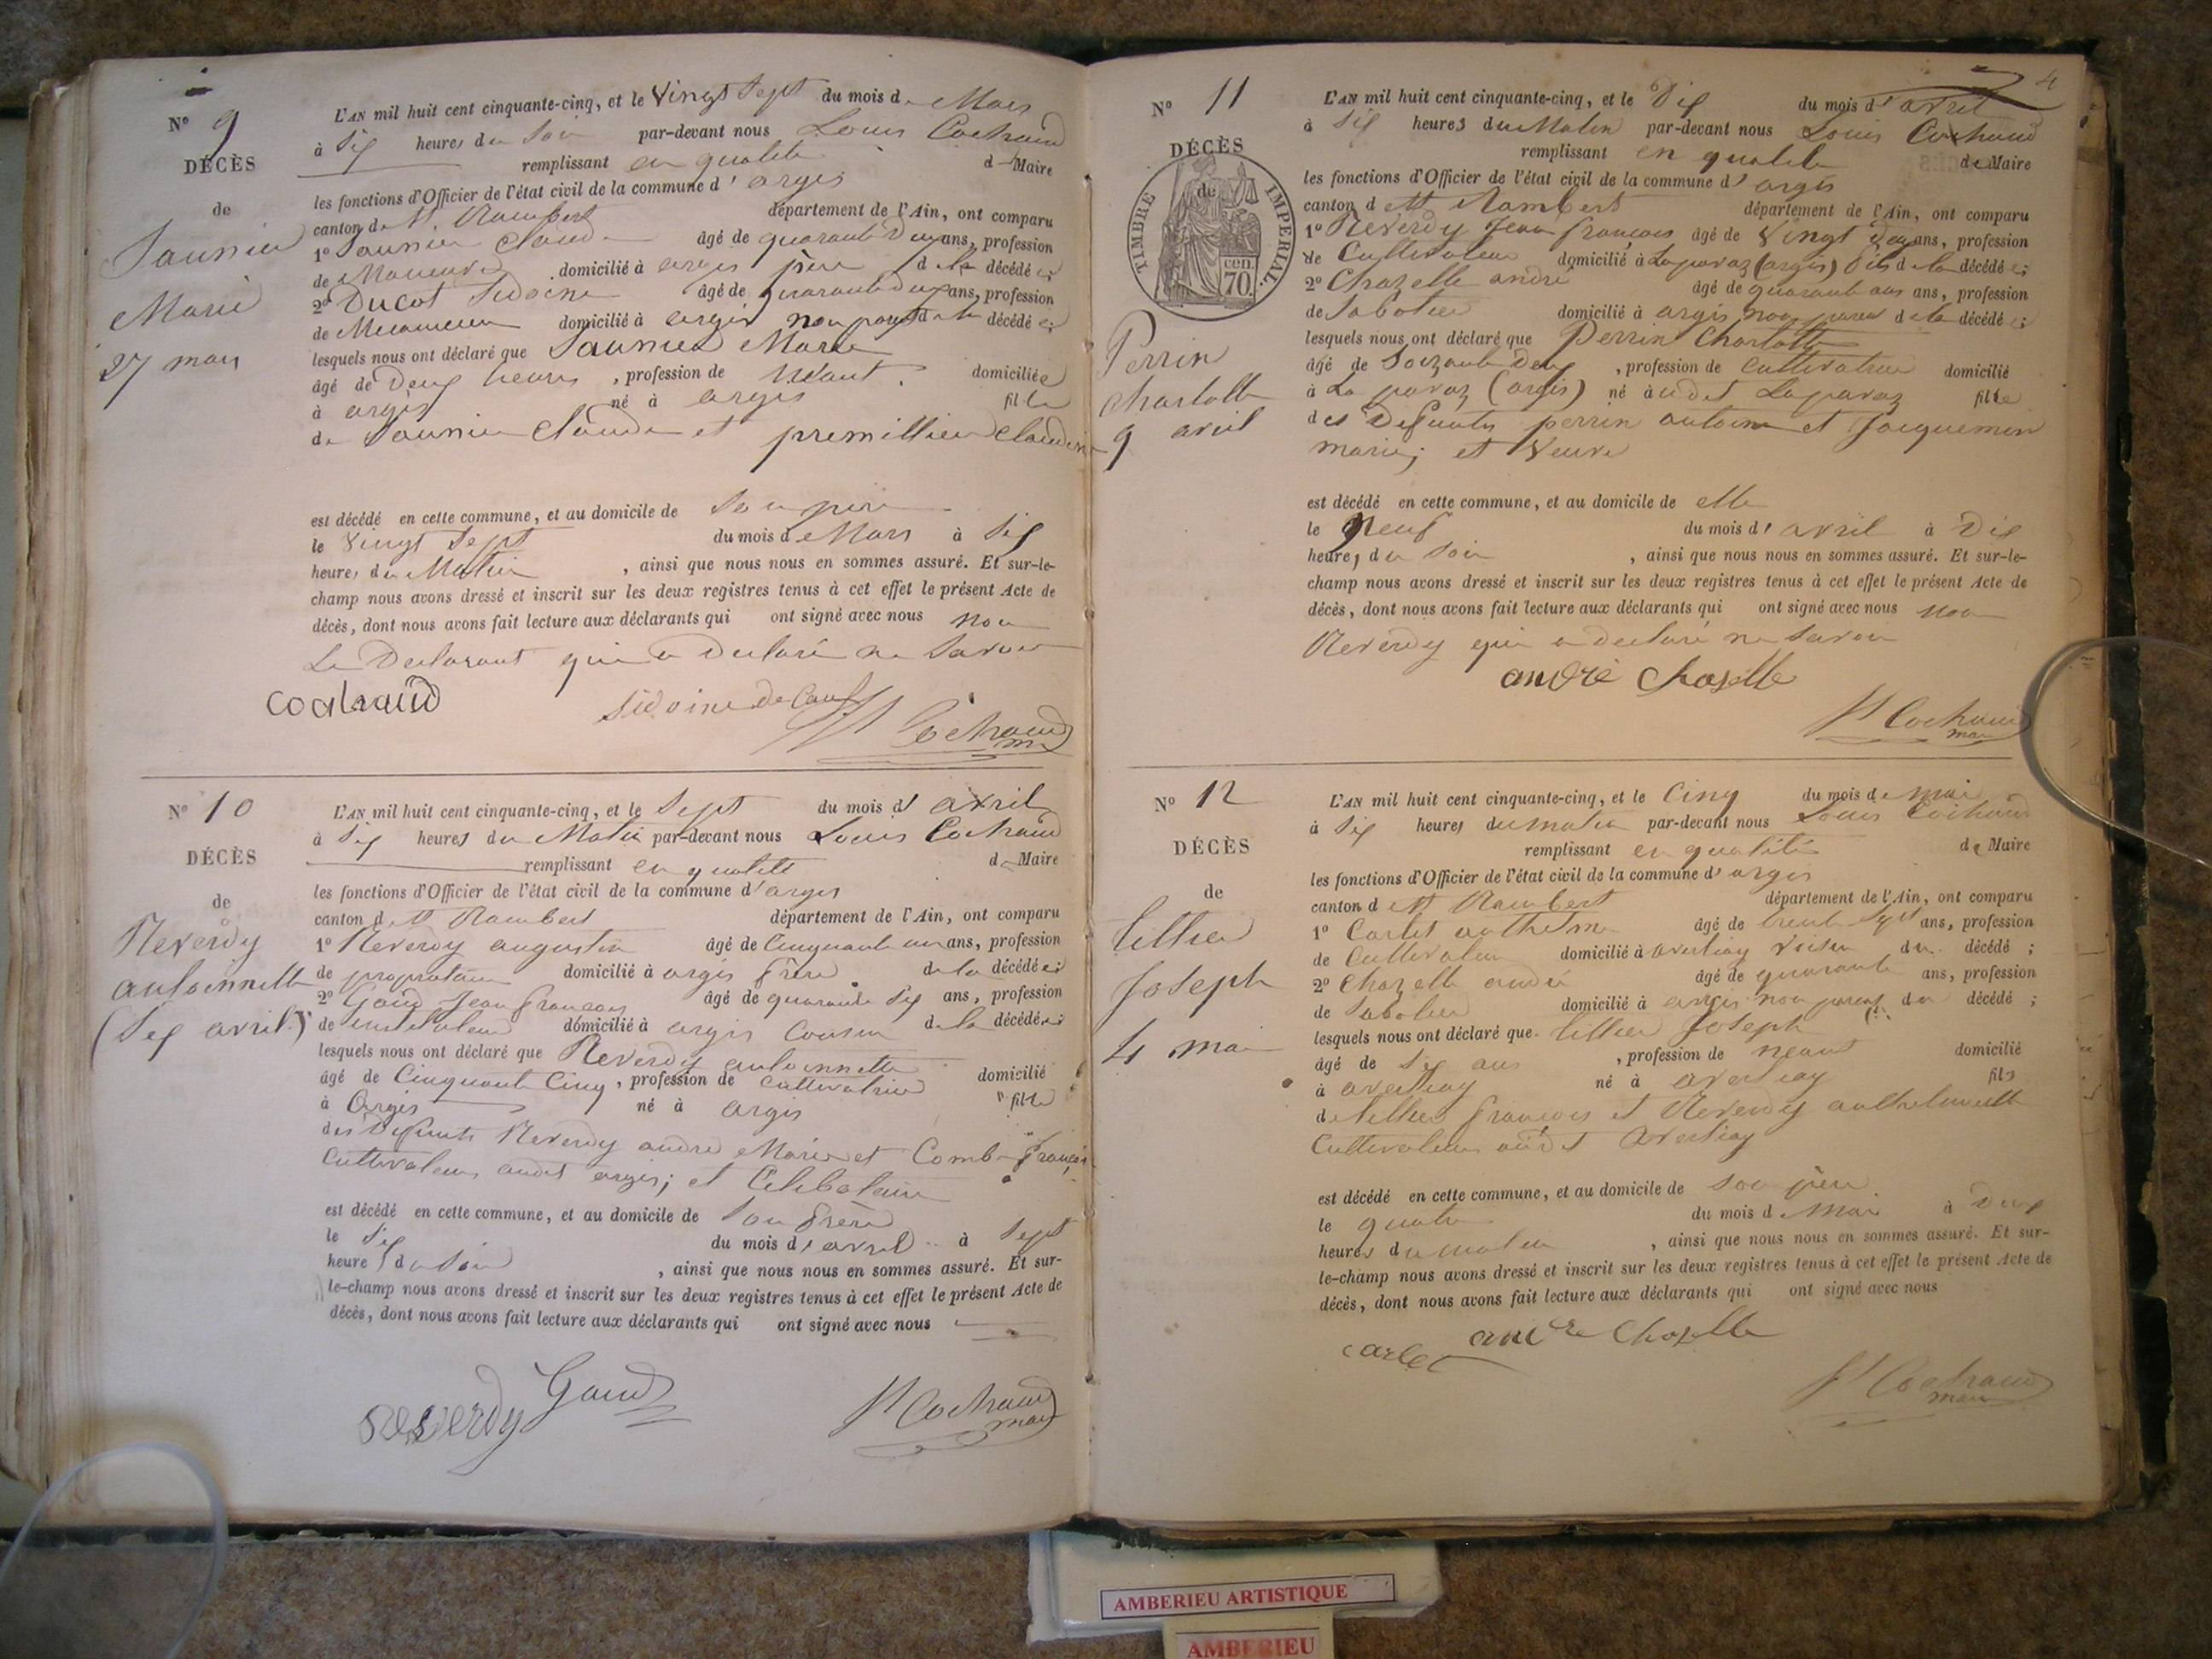 N° 9
DÉCÈS
de
Saunier
Marie
27 mars
L'AN mil huit cent cinquante-cinq, et le vingt sept du mois de Mars
à six heures du soir par-devant nous Louis Cochaud
remplissant en qualité de Maire
les fonctions d'Officier de l'état civil de la commune d'argis
canton de St Rambert département de l'Ain, ont comparu
1° Saunier Claude âgé de quarante deux ans, profession
de domicilié à argis père de la décédée;
2° Ducot Sidoine âgé de quarante deux ans, profession
de domicilié à argis non parent de la décédée;
lesquels nous ont déclaré que Saunier Marie
âgé de Deux heures, profession de Néant. domiciliée
à argis né à argis fille
de Saunier Claude et premillieu Claudine
est décédé en cette commune, et au domicile de Son père
le vingt sept du mois de Mars à six
heures du Matin, ainsi que nous nous en sommes assuré. Et sur-le-
champ nous avons dressé et inscrit sur les deux registres tenus à cet effet le présent Acte de
décès, dont nous avons fait lecture aux déclarants qui ont signé avec nous non
Le Declarant qui a Declaré ne Savoir
Cochaud
mai
N° 10
DÉCÈS
de
Reverdy
antoinnette
(six avril)
L'AN mil huit cent cinquante-cinq, et le Sept du mois d'avril
à six heures du Matin par-devant nous Louis Cochaud
remplissant en qualité de Maire
les fonctions d'Officier de l'état civil de la commune d'argis
canton de St Rambert département de l'Ain, ont comparu
1° Reverdy augustin âgé de Cinquante un ans, profession
de propriétaire domicilié à argis frère de la décédée;
2° Goüd Jean françois âgé de quarante six ans, profession
de domicilié à argis Cousin de la décédée;
lesquels nous ont déclaré que Reverdy antoinnette
âgé de Cinquante Cinq, profession de cultivatrice domicilié
à Argis né à argis fille
des Defunts Reverdy andré Marie et Combe françoise
Cultivateurs audit argis; et Célibataire
est décédé en cette commune, et au domicile de Son frère
le six du mois d'avril à Sept
heures du Soir, ainsi que nous nous en sommes assuré. Et sur-
le-champ nous avons dressé et inscrit sur les deux registres tenus à cet effet le présent Acte de
décès, dont nous avons fait lecture aux déclarants qui ont signé avec nous
reverdy
Cochaud
mai
4
N° 11
DÉCÈS
de
TIMBRE IMPERIAL.
cen.
70
Perrin
Charlotte
9 avril
L'AN mil huit cent cinquante-cinq, et le Dix du mois d'avril
à six heures du Matin par-devant nous Louis Cochaud
remplissant en qualité de Maire
les fonctions d'Officier de l'état civil de la commune d'argis
canton de St Rambert département de l'Ain, ont comparu
1° Reverdy Jean françois âgé de vingt deux ans, profession
de Cultivateur domicilié à Laparaz (argis) fils de la décédée;
2° Chazelle andré âgé de quarante ans ans, profession
de Sabotier domicilié à argis non parent de la décédée;
lesquels nous ont déclaré que Perrin Charlotte
âgé de Soixante Deux, profession de cultivatrice domicilié
à La paraz (argis) né à udit Laparaz fille
des Defunts perrin antoine et Jacquemin
marie; et Veuve
est décédé en cette commune, et au domicile de elle
le Neuf du mois d'avril à Dix
heures du Soir, ainsi que nous nous en sommes assuré. Et sur-le-
champ nous avons dressé et inscrit sur les deux registres tenus à cet effet le présent Acte de
décès, dont nous avons fait lecture aux déclarants qui ont signé avec nous non
Reverdy qui a declaré ne Savoir
andré Chazelle
Cochaud
mai
N° 12
DÉCÈS
de
tillier
Joseph
4 mai
L'AN mil huit cent cinquante-cinq, et le Cinq du mois de mai
à six heures du matin par-devant nous Louis Cochaud
remplissant en qualité de Maire
les fonctions d'Officier de l'état civil de la commune d'argis
canton de St Rambert département de l'Ain, ont comparu
1° Carlet anthelme âgé de trente Sept ans, profession
de Cultivateur domicilié à averliay voisin du décédé;
2° Chazelle andré âgé de quarante ans, profession
de Sabotier domicilié à argis non parent du décédé;
lesquels nous ont déclaré que tillier Joseph
âgé de six ans, profession de neant domicilié
à averliay né à averliay fils
de tillier françois et Reverdy anthelmette
Cultivateurs audit Averliay
est décédé en cette commune, et au domicile de son père
le quatre du mois de Mai à Deux
heures du matin, ainsi que nous nous en sommes assuré. Et sur-
le-champ nous avons dressé et inscrit sur les deux registres tenus à cet effet le présent Acte de
décès, dont nous avons fait lecture aux déclarants qui ont signé avec nous
carlet
andre Chazelle
Cochaud
mai
AMBERIEU ARTISTIQUE
AMBERIEU